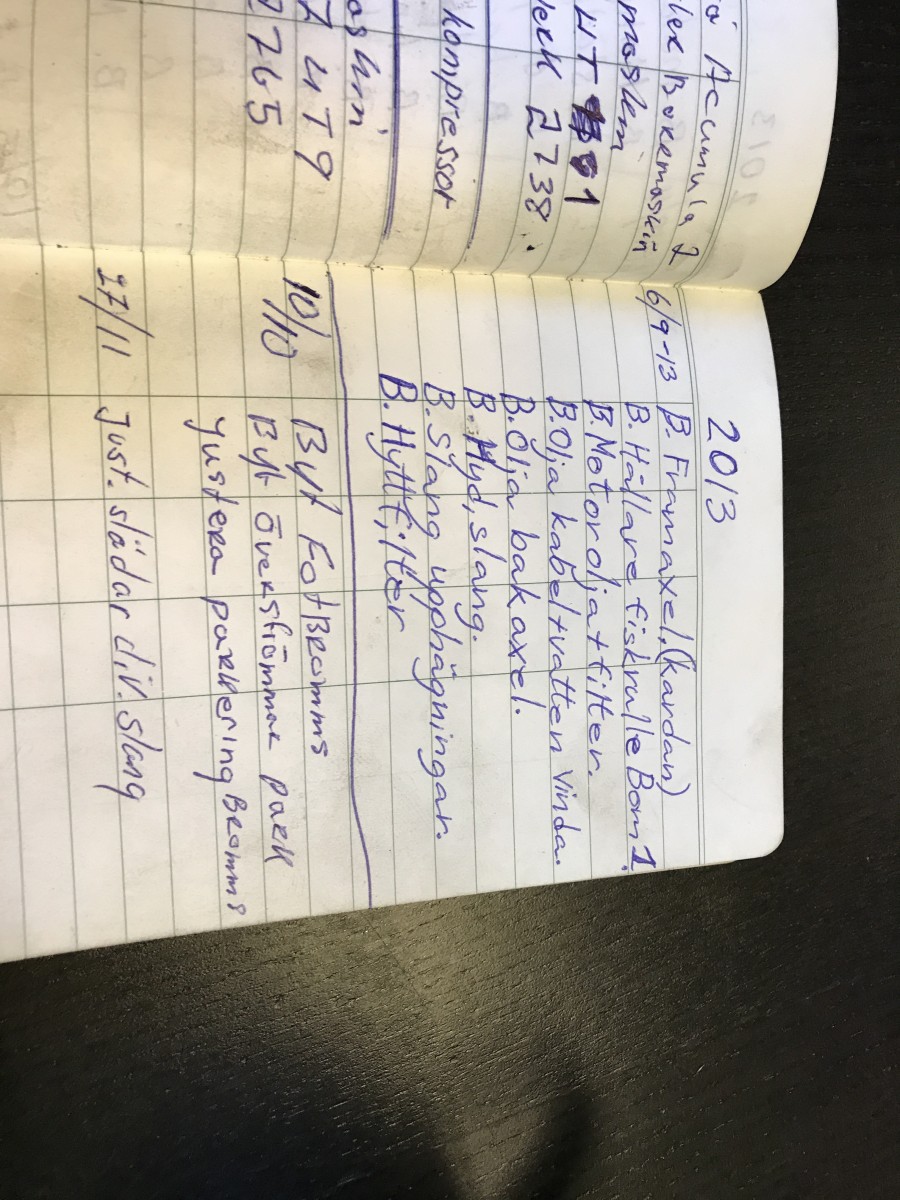 Acumula 2
Borrmaskin
LIT 1
2738.
kompressor
Z 4T9
2765
2013
6/9-13 B. Framaxel, (kardan)
B. Hållare fiskrulle Bom 1.
B. Motorolja + filter.
B. Olja kabel + vatten vinda.
B. Olja bakaxel.
B. Hyd, slang.
B. Slang upphägningar.
B. Hyttfilter
10/10 Byt FotBromms
Byt Överströmmar park
Yustera parkering Bromms
27/11 Just. slädar div. slang